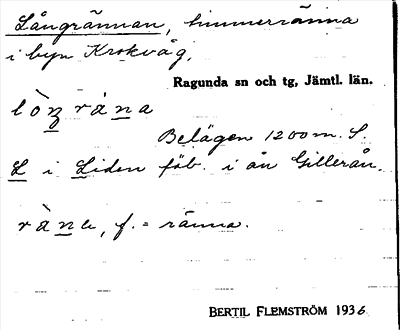 Långrännan, timmerränna
i byn Krokvåg.
Ragunda sn och tg, Jämtl. län.
Belägen 1200 m. S.
L i Liden fäb. i ån Gillerån.
f. = ränna.
BERTIL FLEMSTRÖM 1936